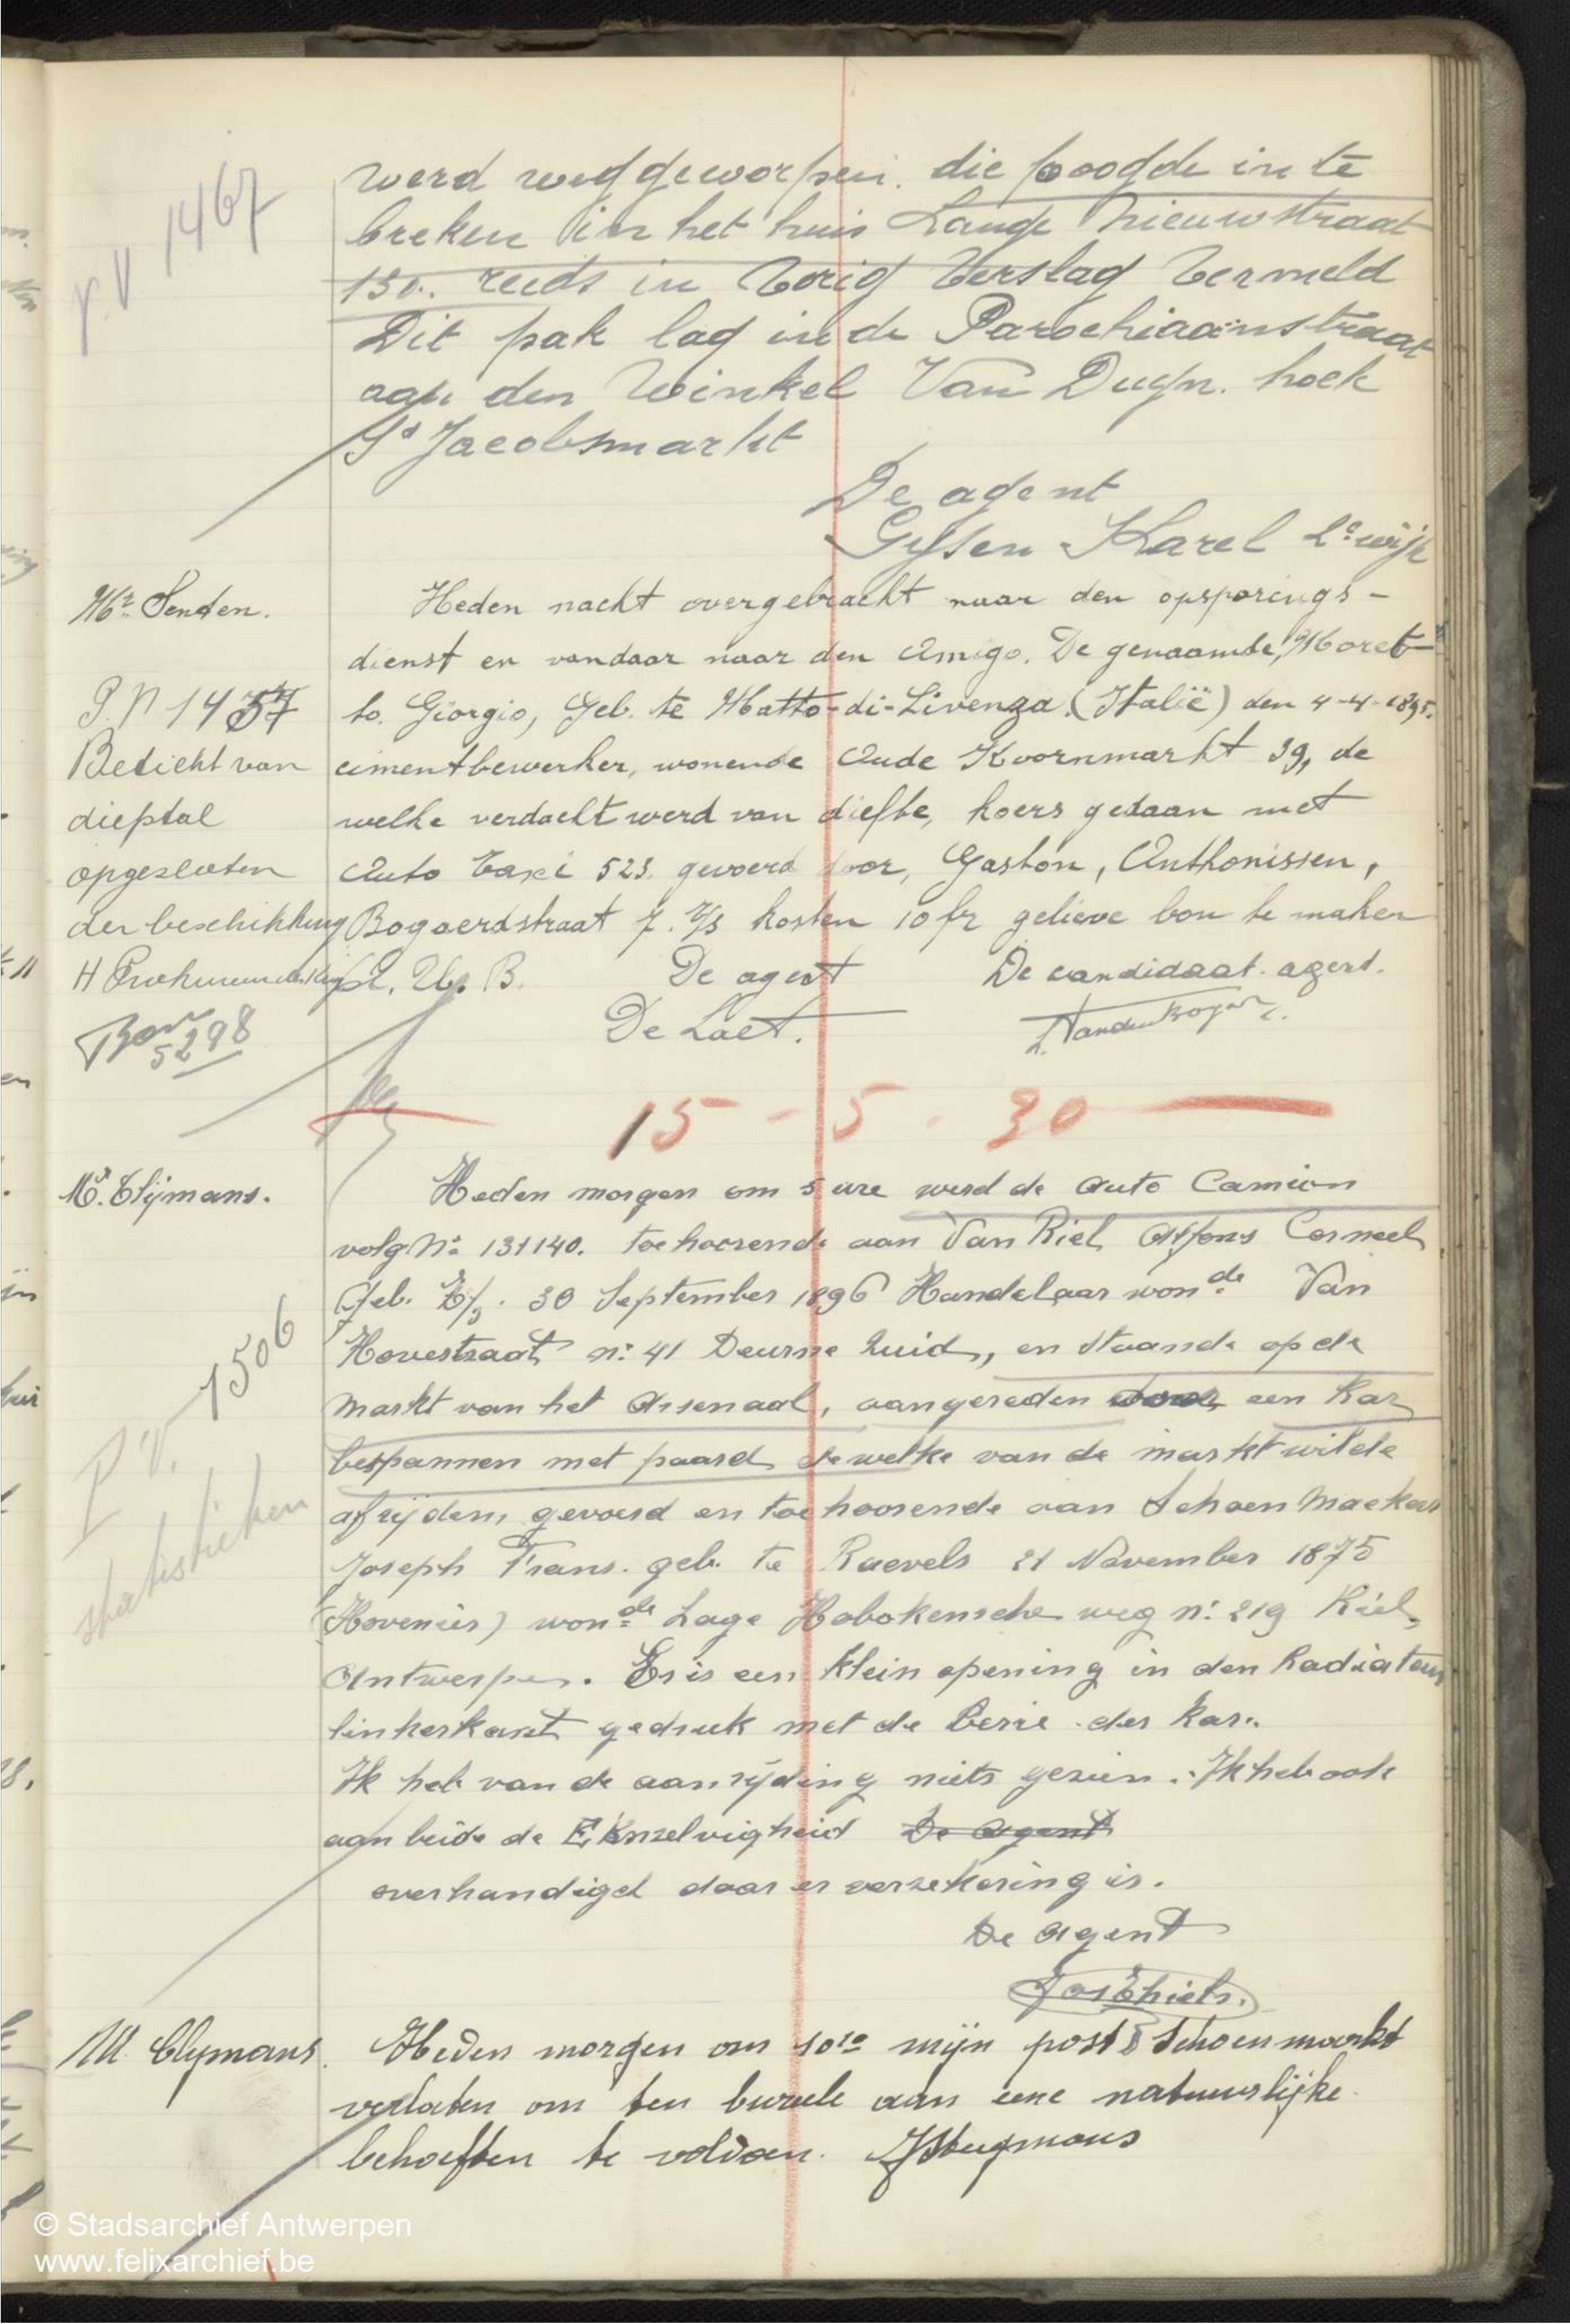 P.V 1467
werd weggeworpen. die poogde in te
breken in het huis Lange Nieuwstraat
130. reeds in vorig verslag vermeld
Dit pak lag in de Parochiaanstraat
aan den Winkel Van Duyn. hoek
St Jacobsmarkt
De agent
Gysen Karel 2e wijk
Mr. Senden.
Heden nacht overgebracht naar den opsporings-
dienst en vandaar naar den Amigo. De genaamde, Moret-
P.V 1457
to. Giorgio, Geb. te Motto-di-Livenza (Italië) den 4-4-1895.
Bedicht van
cimentbewerker, wonende Oude Koornmarkt 39, de
diefstal
welke verdacht werd van diefte, koers gedaan met
opgesloten
Auto Taxi 523. gevoerd door, Gaston, Anthonissen,
der beschikking
Bogaerdstraat 7. T/s kosten 10 fr gelieve bon te maken
H
A. Ub. B. De agent De candidaat. agent.
Bon
5298
De Laet.
15 - 5 - 30
Mr. Clijmans.
Heden morgen om 5 ure werd de Auto Camion
volg No 131140. toehoorende aan Van Riel Alfons Corneel
Geb. T/s. 30 September 1896 Handelaar wonde Van
Hovestraat no 41 Deurne Zuid, en staande op de
P.V. 1506
markt van het Arsenaal, aangereden door een kar
bespannen met paard, dewelke van de markt wilde
statistieken
afrijden, gevoerd en toehoorende aan Schoenmaekers
Joseph Frans. geb. te Raevels 21 November 1875
(Hovenier) wonde Lage Hobokensche weg no 219 Kiel,
Antwerpen. Er is een klein opening in den Radiateur
linkerkant gedruk met de berrie der kar.
Ik heb van de aanrijding niets gezien. Ik heb ook
aan beide de EKnzelvigheid De Agent
overhandigd daar er verzekering is.
De Agent
Jos Thiels.
M. Clymans.
Heden morgen om 10 10 mijn post Schoenmarkt
verlaten om ten bureele aan eene natuurlijke
behoeften te voldoen.
© Stadsarchief Antwerpen
www.felixarchief.be